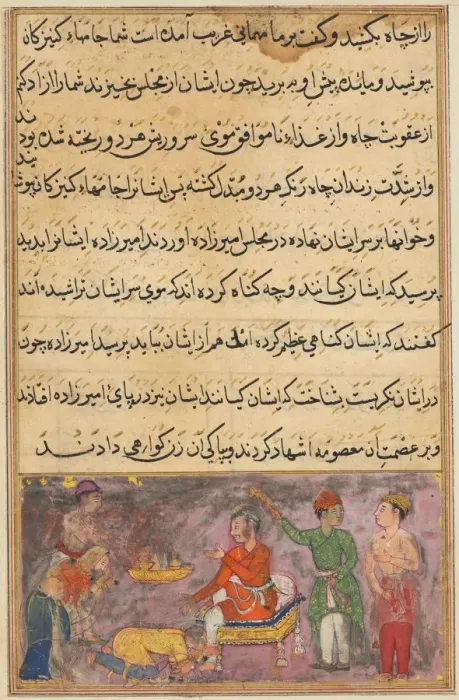 را از چاه بکشید و گفت بر ما مهمانی غریب آمده است شما جامهاء کنیزکان
بپوشید و مایده پیش او برید چون ایشان از مجلس بخیزند شما را ازاد کنم
از عقوبت چاه و از غذاء نا موافق موی سر و ریش هر دو ریخته شده بود
و از شدت زندان چاه رنک هر دو مبدل کشته پس ایشانرا جامهاء کنیزکان پوشا
نیدند
و خوانها بر سر ایشان نهاده در مجلس امیرزاده اوردند امیرزاده ایشانرا بدید
پرسید که ایشان کیانند و چه کناه کرده اند که موی سر ایشان تراشیده اند
کفتند که ایشان کناهی عظیم کرده اند هم از ایشان بباید پرسید امیرزاده چون
در ایشان نکریست بشناخت که ایشان کیانند ایشان نیز در پای امیرزاده افتادند
و بر عصمت آن معصومه اشهاد کردند و بپاکی آن زن کواهی دادند